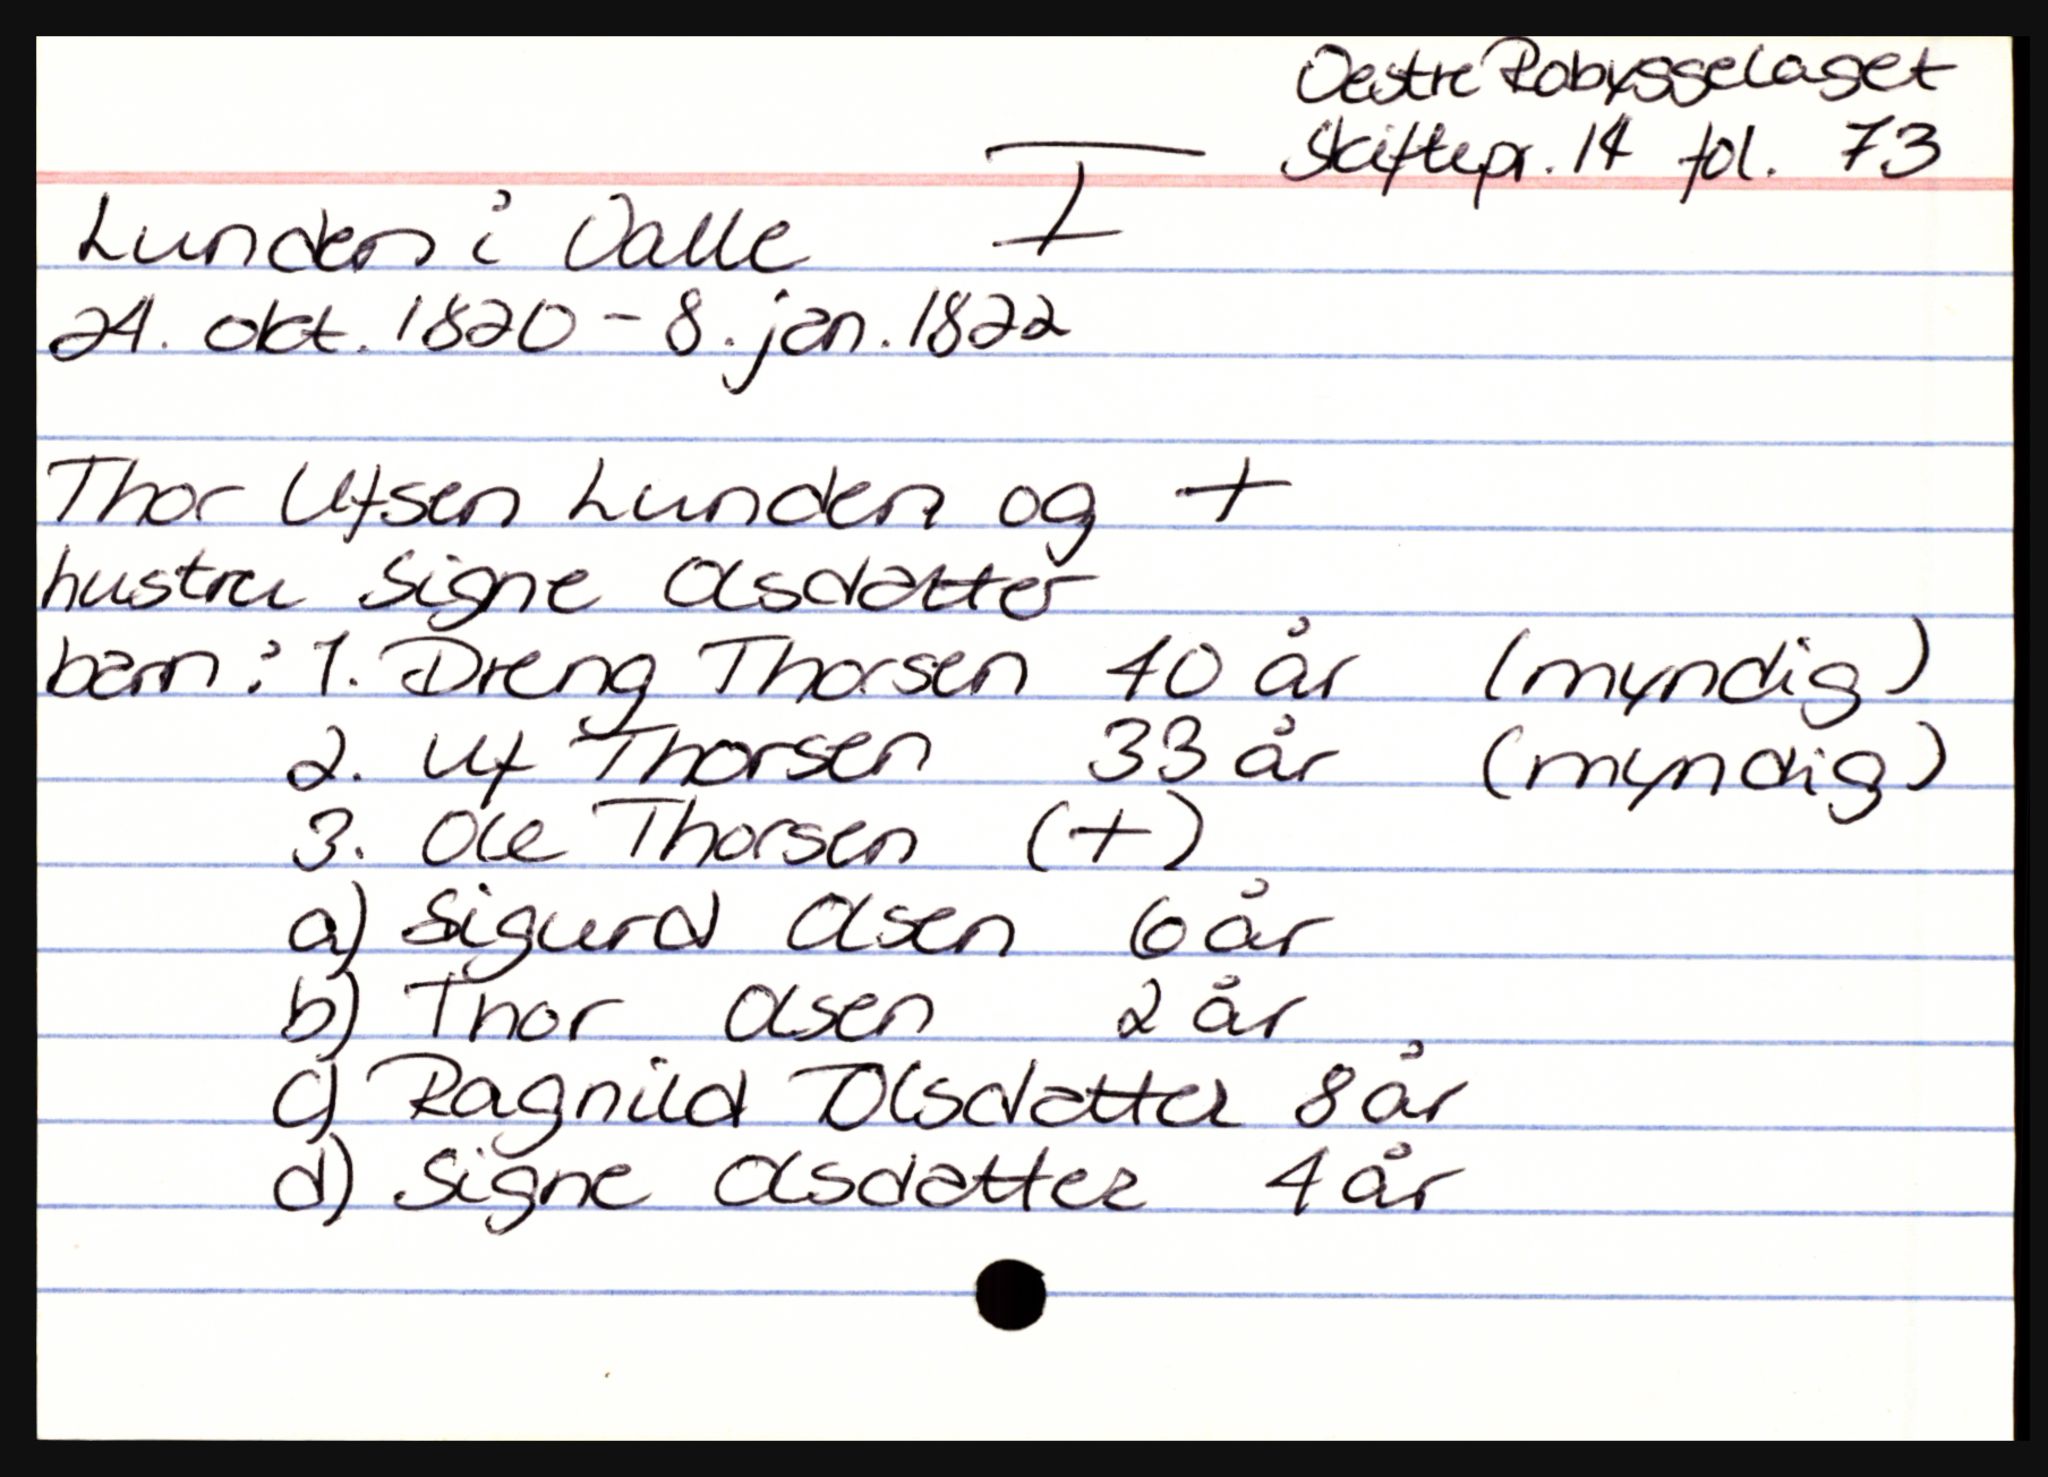 Oestre Robyggelaget
Skiftepr. 14 fol. 73
I
Lunden i Valle
24. okt. 1820 - 8. jan. 1822
Thor Ufsen Lunden og +
hustru Signe Olsdatter
barn: 1. Dreng Thorsen 40 år (myndig)
2. Uf Thorsen 33 år (myndig)
3. Ole Thorsen (+)
a) Sigurd Olsen 6 år
b) Thor Olsen 2 år
c) Ragnild Olsdatter 8 år
d) Signe Olsdatter 4 år